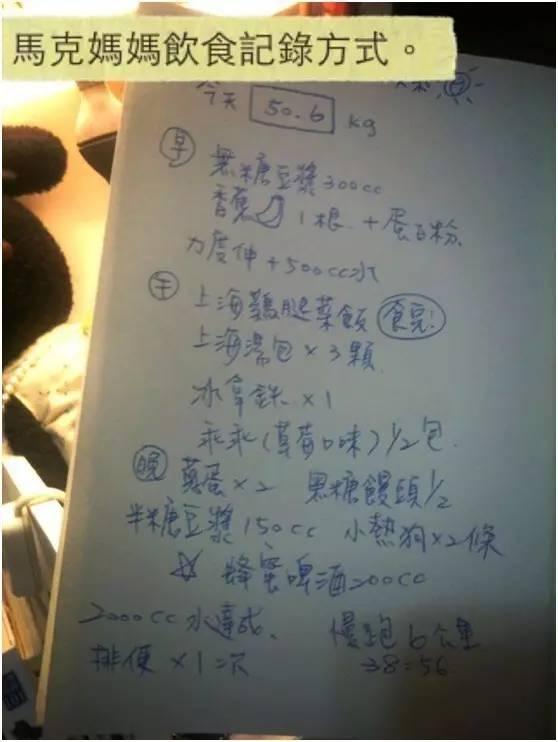 馬克媽媽飲食記錄方式。
今天 50.6 kg
早 無糖豆漿300cc
香蕉 1根 + 蛋白粉
力度伸 + 500cc水
午 上海雞腿菜飯 食完!
上海湯包 × 3顆
冰拿鉄 × 1
乖乖(草莓口味) 1/2包
晚 蒸蛋 × 2 黑糖饅頭 1/2
半糖豆漿150cc 小熱狗 × 2條
☆ 蜂蜜啤酒200cc
2000cc水達成
慢跑6公里
排便 × 1次
38:56